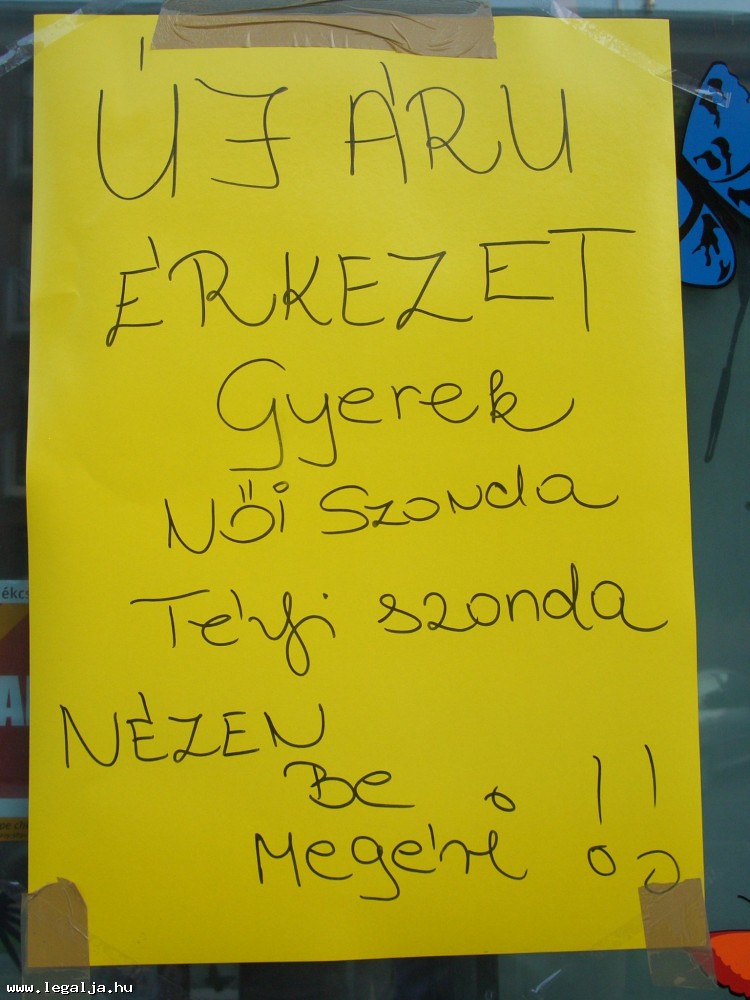 ÚJ ÁRU
ÉRKEZET
Gyerek
Női Szonda
Téyi szonda
NÉZEN
Be
Megéri !!
ékcs
www.legalja.hu